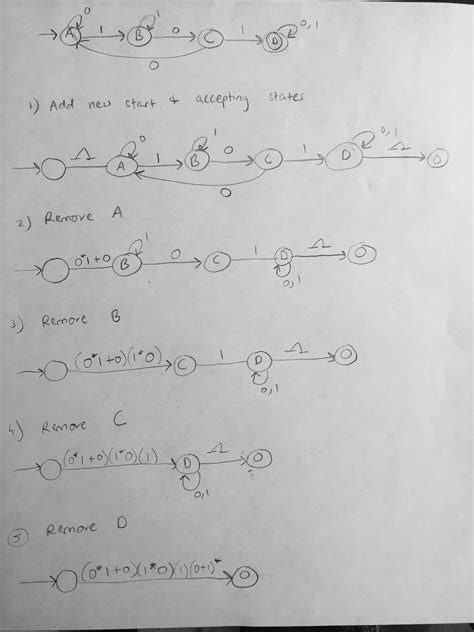 0 1 0, 1
A 1 B 0 C 1 D
0
1) Add new start & accepting states
0 1 0, 1
Λ A 1 B 0 C 1 D Λ
0
2) Remove A
1
0*1+0 B 0 C 1 D Λ
0,1
3) Remove B
(0*1+0)(1*0) C 1 D Λ
0,1
4) Remove C
(0*1+0)(1*0)(1) D Λ
0,1
5 Remove D
(0*1+0)(1*0)(1)(0+1)*